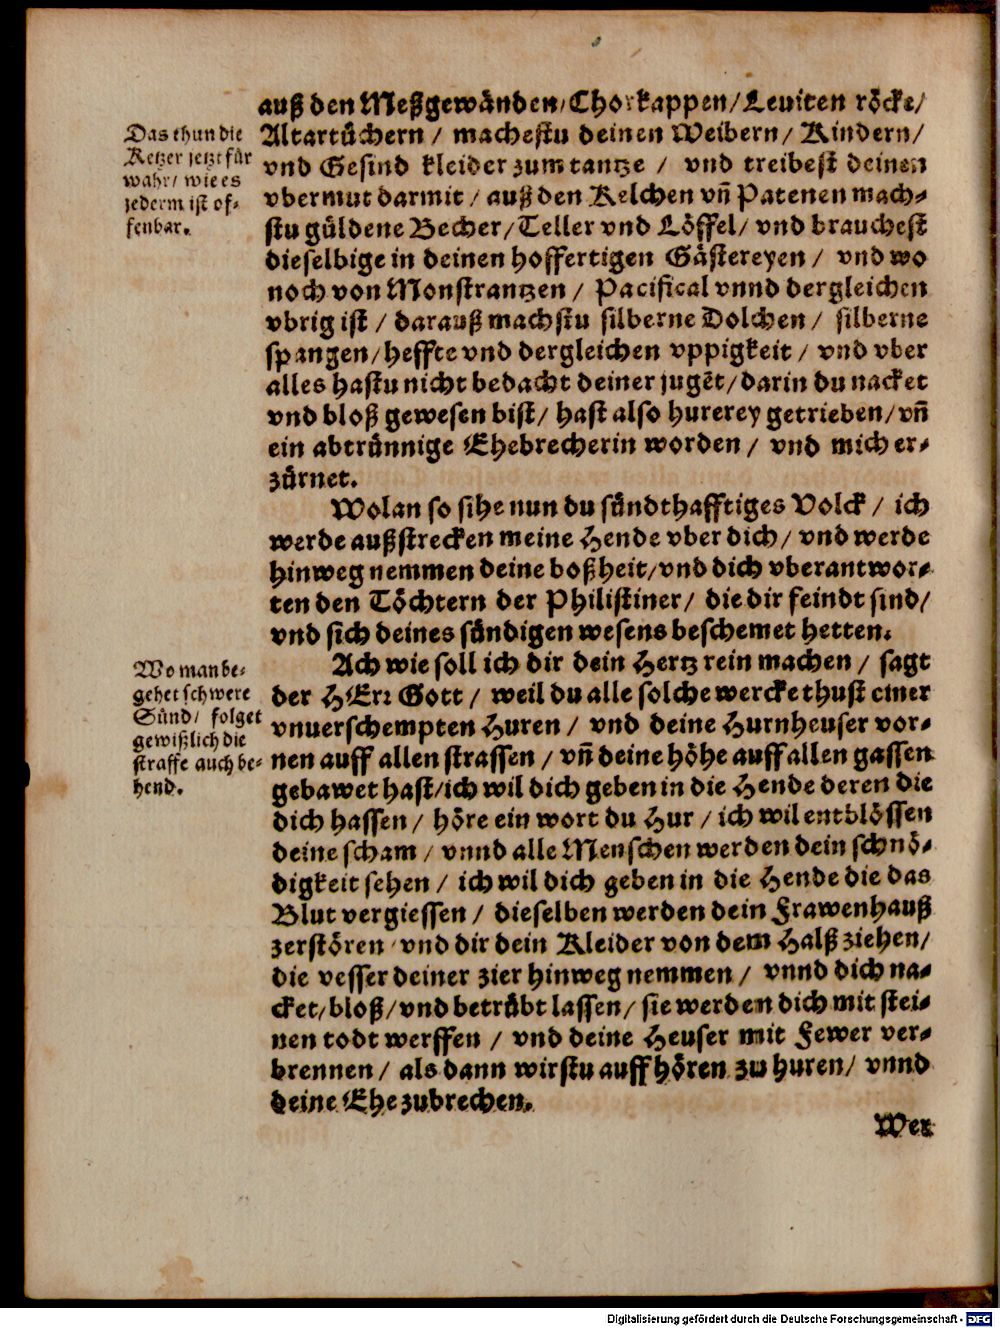 auß den Meßgewänden/Chorkappen/Leuiten röcke/
Altartůchern / machestu deinen Weibern/ Kindern/
vnd Gesind kleider zum tantze / vnd treibest deinen
vbermut darmit / auß den Kelchen vñ Patenen mach-
stu güldene Becher/Teller vnd Löffel/ vnd brauchest
dieselbige in deinen hoffertigen Gästereyen / vnd wo
noch von Monstrantzen / Pacifical vnnd dergleichen
vbrig ist / darauß machstu silberne Dolchen / silberne
spangen/heffte vnd dergleichen vppigkeit / vnd vber
alles hastu nicht bedacht deiner jugẽt/darin du nacket
vnd bloß gewesen bist/ hast also hurerey getrieben/vñ
ein abtrünnige Ehebrecherin worden / vnd mich er-
zürnet.
Das thun die
Ketzer jetzt für
wahr/ wie es
jederm ist of-
fenbar.
Wolan so sihe nun du sündthafftiges Volck / ich
werde außstrecken meine Hende vber dich/ vnd werde
hinweg nemmen deine boßheit/vnd dich vberantwor-
ten den Töchtern der Philistiner/ die dir feindt sind/
vnd sich deines sündigen wesens beschemet hetten.
Ach wie soll ich dir dein Hertz rein machen / sagt
der HErr Gott / weil du alle solche wercke thust einer
vnuerschempten Huren / vnd deine Hurnheuser vor-
nen auff allen strassen / vñ deine höhe auff allen gassen
gebawet hast/ich wil dich geben in die Hende deren die
dich hassen / höre ein wort du Hur / ich wil entblössen
deine scham / vnnd alle Menschen werden dein schnö-
digkeit sehen / ich wil dich geben in die Hende die das
Blut vergiessen / dieselben werden dein Frawenhauß
zerstören / vnd dir dein Kleider von dem Halß ziehen/
die vesser deiner zier hinweg nemmen / vnnd dich na-
cket/bloß/vnd betrübt lassen/ sie werden dich mit stei-
nen todt werffen / vnd deine Heuser mit Fewer ver-
brennen / als dann wirstu auff hören zu huren/ vnnd
deine Ehe zubrechen.
Wo man be-
gehet schwere
Sünd/ folget
gewißlich die
straffe auch be-
hend.
Wer
Digitalisierung gefördert durch die Deutsche Forschungsgemeinschaft - DFG